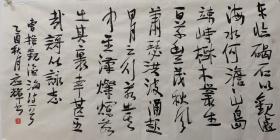 东临碣石以觀滄
海水何澹澹山岛
竦峙樹木丛生
百草丰茂秋风
萧瑟洪波涌起
日月之行若出其
中星漢燦烂若
出其里幸甚至
哉歌以咏志
曹操觀滄海诗一首
乙酉秋月